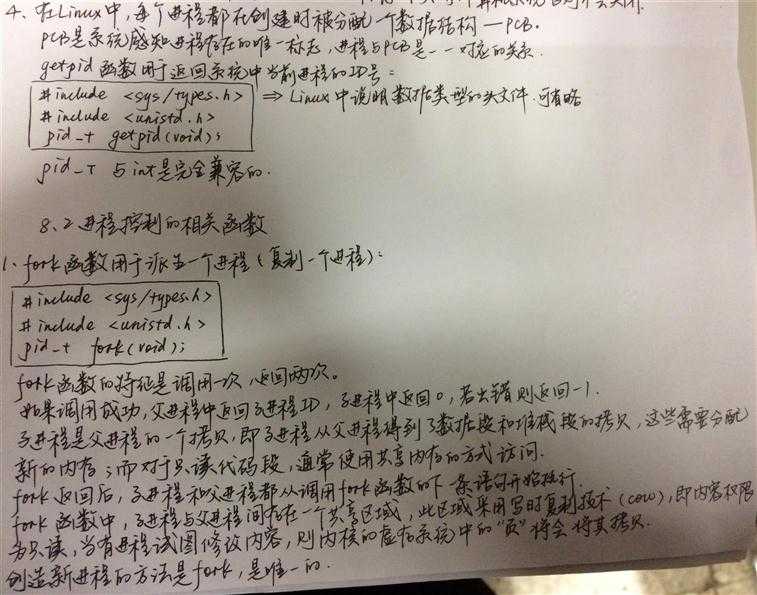 4. 在Linux中,每个进程都在创建时被分配一个数据结构—PCB。
PCB是系统感知进程存在的唯一标志,进程与PCB是一一对应的关系.
getpid函数用于返回系统中当前进程的ID号:
#include <sys/types.h> ⇒ Linux中说明数据类型的头文件.可省略
#include <unistd.h>
pid_t getpid(void);
pid_t 与int是完全兼容的.
8.2 进程控制的相关函数
1. fork函数用于派生一个进程(复制一个进程):
#include <sys/types.h>
#include <unistd.h>
pid_t fork(void);
fork函数的特征是调用一次,返回两次。
如果调用成功,父进程中返回子进程ID,子进程中返回0,若出错则返回-1.
子进程是父进程的一个拷贝,即子进程从父进程得到了数据段和堆栈段的拷贝,这些需要分配
新的内存;而对于只读代码段,通常使用共享内存的方式访问.
fork返回后,子进程和父进程都从调用fork函数的下一条语句开始执行.
fork函数中,子进程与父进程间存在一个共享区域,此区域采用写时复制技术(cow),即内容权限
为只读,当有进程试图修改内容,则内核的虚存系统中的"页"将会将其拷贝.
创造新进程的方法是fork,是唯一的.